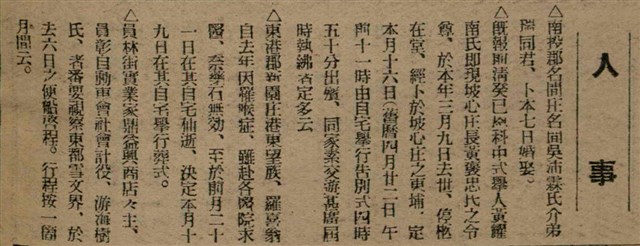 人事
△南投郡名間庄名間吳沛霖氏介弟
同君、卜本七日婚娶。
△既報前清癸巳恩科中式舉人黃耀
南氏即現坡心庄長黃褒忠氏之令
尊、於本年三月九日去世、停柩
在堂、經卜於坡心庄之東埔、定
本月十六日（舊曆四月廿二日）午
前十一時由自宅舉行告別式四時
五十分出殯、同家素交遊甚廣屆
時執紼者定多云
△東港郡新園庄港東望族、羅喜翁
自去年因羅喉症、雖赴各醫院求
醫、奈藥石無効、至於前月二十
一日在其自宅仙逝、決定本月十
九日在其自宅舉行葬式。
△員林街實業家鼎益興商店々主、
員彰自動車會社會計役、游海樹
氏、者番要視察東都雪文界、於
去六日之便船啓程。行程按一箇
月間云。